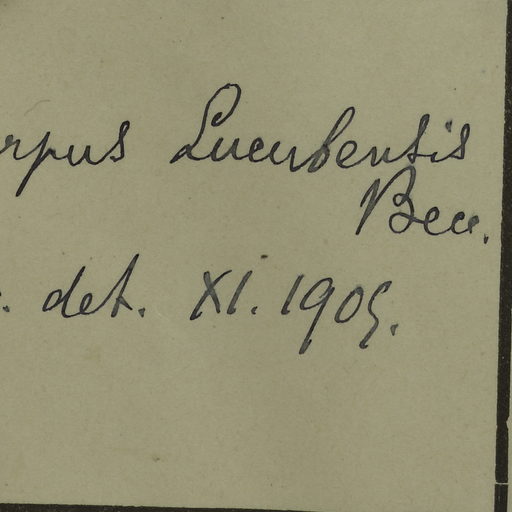 rpus Lucubensis
Becc.
. det. XI. 1909.